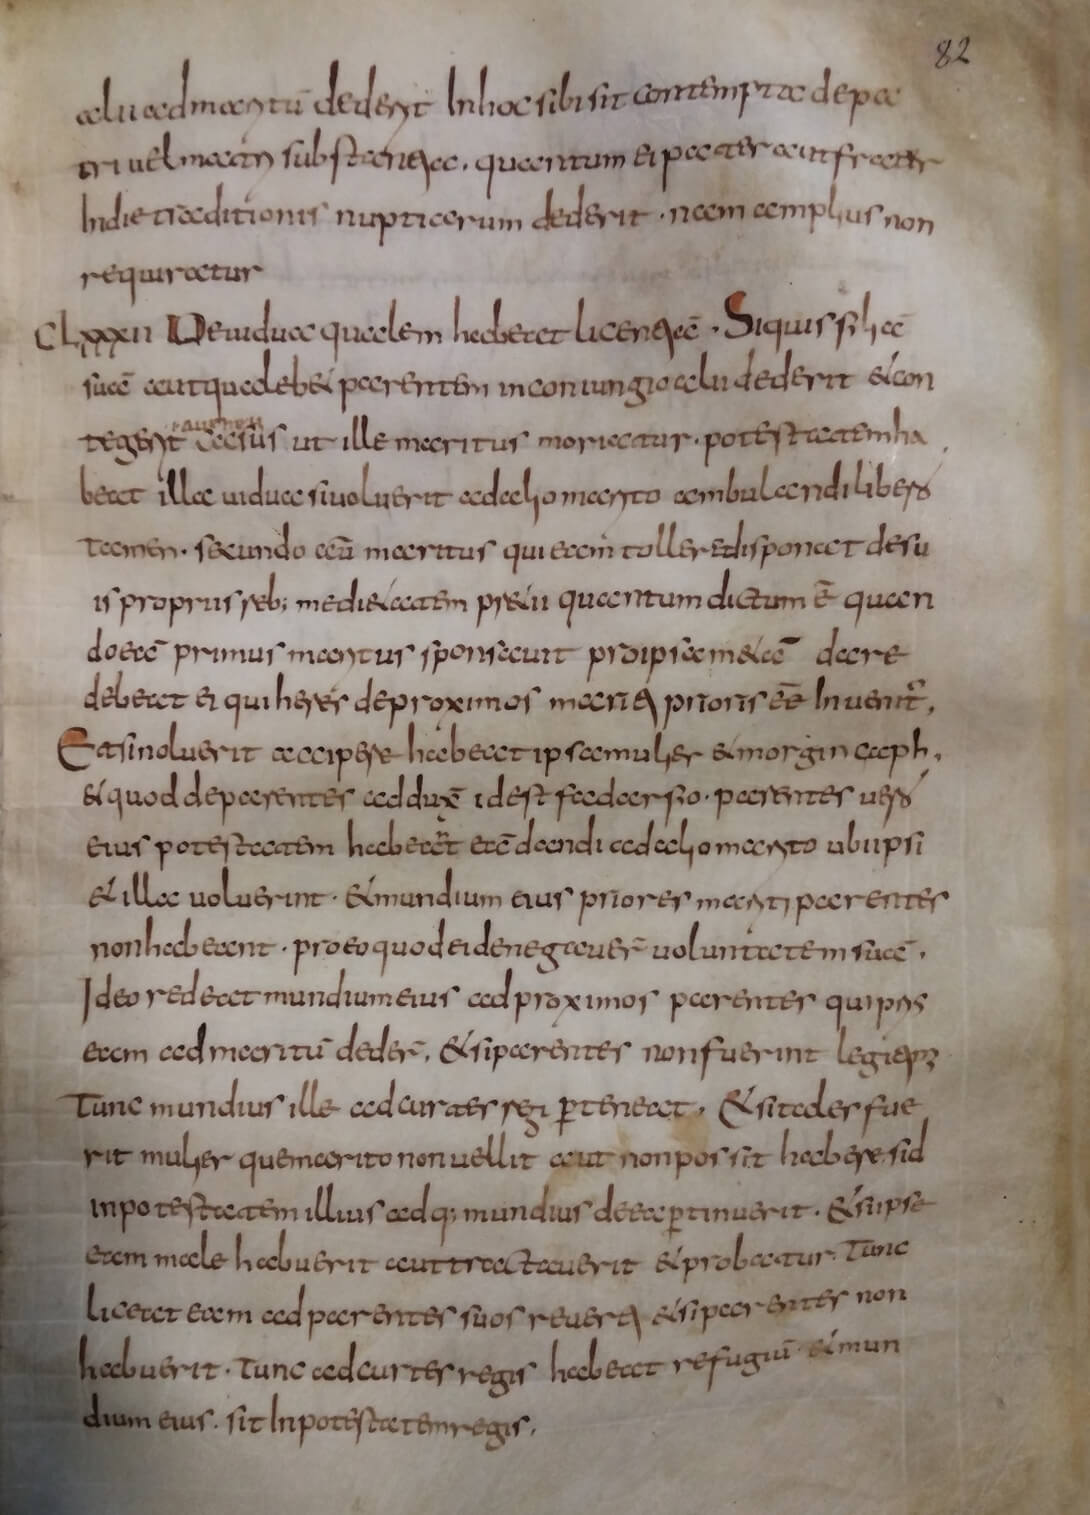 82
aliu ad maritū dederit In hoc sibi sit contempta de pa
tri uel matri substantia. quantum ei pater aut frater
In die traditionis nuptiarum dederit. nam amplius non
requiratur
CLXXXII De uidua qualem habeat licentiā. Si quis filiā
suā aut quālebet parentem in coniungio aliu dederit & con
tegerit casus ut ille maritus moriatur. potestatem ha
beat illa uidua si uoluerit ad alio marito ambulandi libero
tamen. secundo aū maritus qui eam toller& disponat de su
is propriis reb; medi&atem pr&ii quantum dictum ē quan
do eā primus maritus sponsauit pro ipsa m&ā dare
debeat ei qui heres de proximos mariti prioris eē Inuenit̄.
Et si noluerit accipere habeat ipsa mulier & morgincaph.
& quod de parentes adduxē id est fadarfio. parentes uero
eius potestatem habeāt eā dandi ad alio marito ubi ipsi
& illa uoluerint. & mundium eius priores mariti parentes
non habeant. pro eo quod ei denegauer̄ uoluntatem suā.
Ideo redeat mundium eius ad proximos parentes qui prius
eam ad maritū deder̄. & si parentes non fuerint legitimi
Tunc mundius ille ad curtes regi p̄teneat. & si tales fue
rit mulier que marito non uellit aut non possit habere sid
in potestatem illius ad q; mundius de ea p̄tinuerit. & si ipse
eam male habuerit aut tractauerit & probatur. Tunc
liceat eam ad parentes suos reuerti & si parentes non
habuerit. Tunc ad curtes regis habeat refugiū & mun
dium eius. sit In potestatem regis.